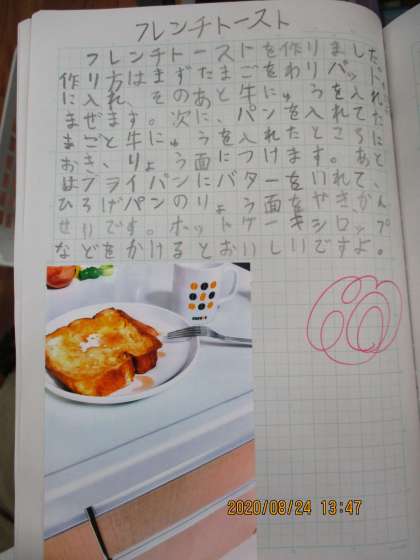 フレンチトースト
フレンチトーストを作りました。
作り方はまずたまごをわり、パッド
に入れ、そのあと牛にゅうを入れ
まぜます。次に、パンを入れてた
まごと牛にゅうを入れたところに
おき、りょう面につけます。あと
はフライパンにバターをいれて、
ひろげパンのりょう面をやきかん
せいです。ホットケーキシロップ
などをかけるとおいしいですよ。
2020/08/24 13:47